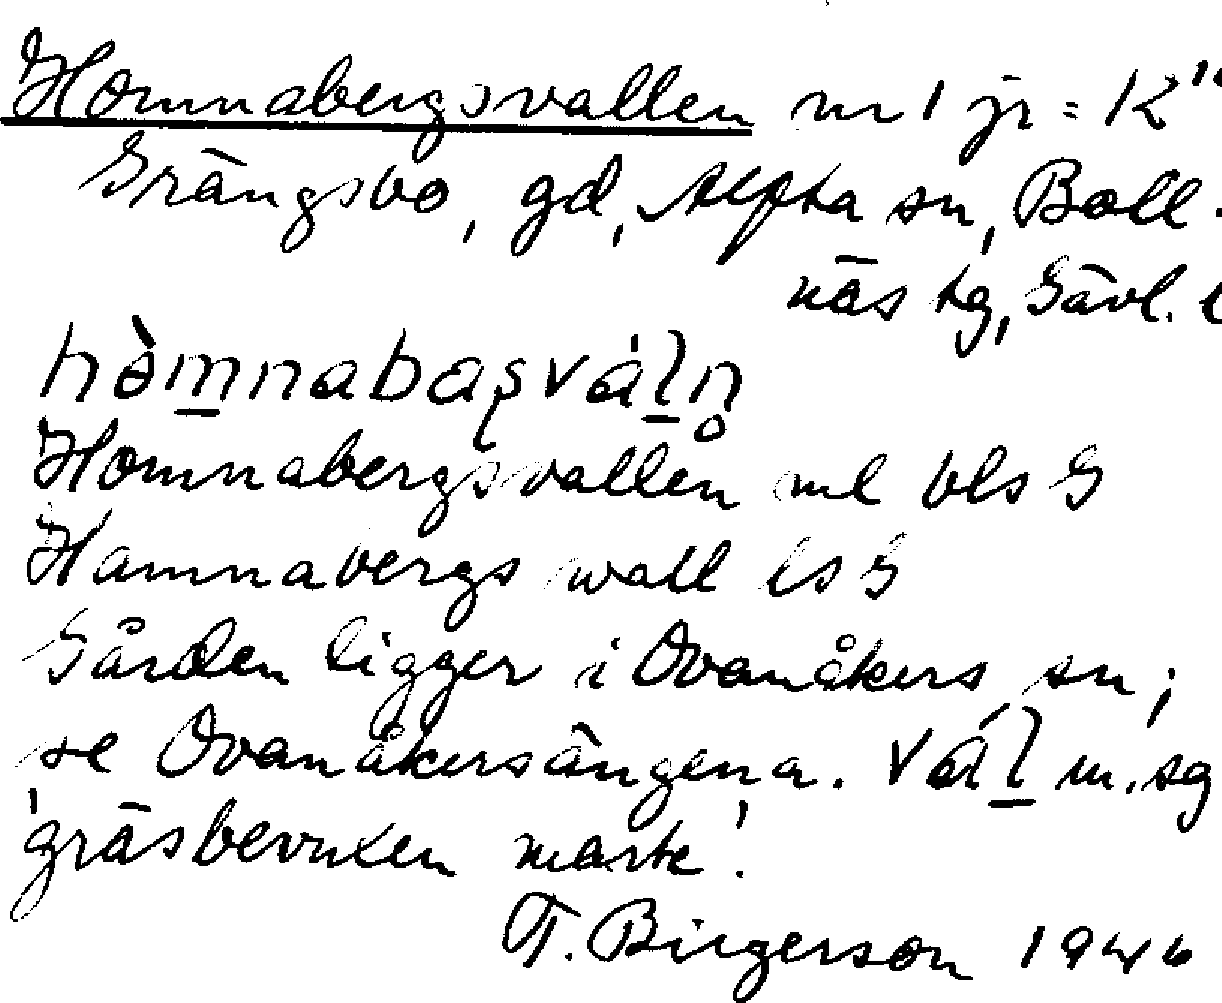 Homnabergsvallen nr 1 jr = K"
Grängsbo, gd, Alfta sn, Boll-
näs tg, Gävl. l
hòmnabaʂvál̲n̥
Homnabergsvallen ml bls G
Hamnabergs wall ls G
Gården ligger i Ovanåkers sn;
se Ovanåkersängena. vál̲ m. sg
'gräsbevuxen mark'.
T. Birgerson 1946